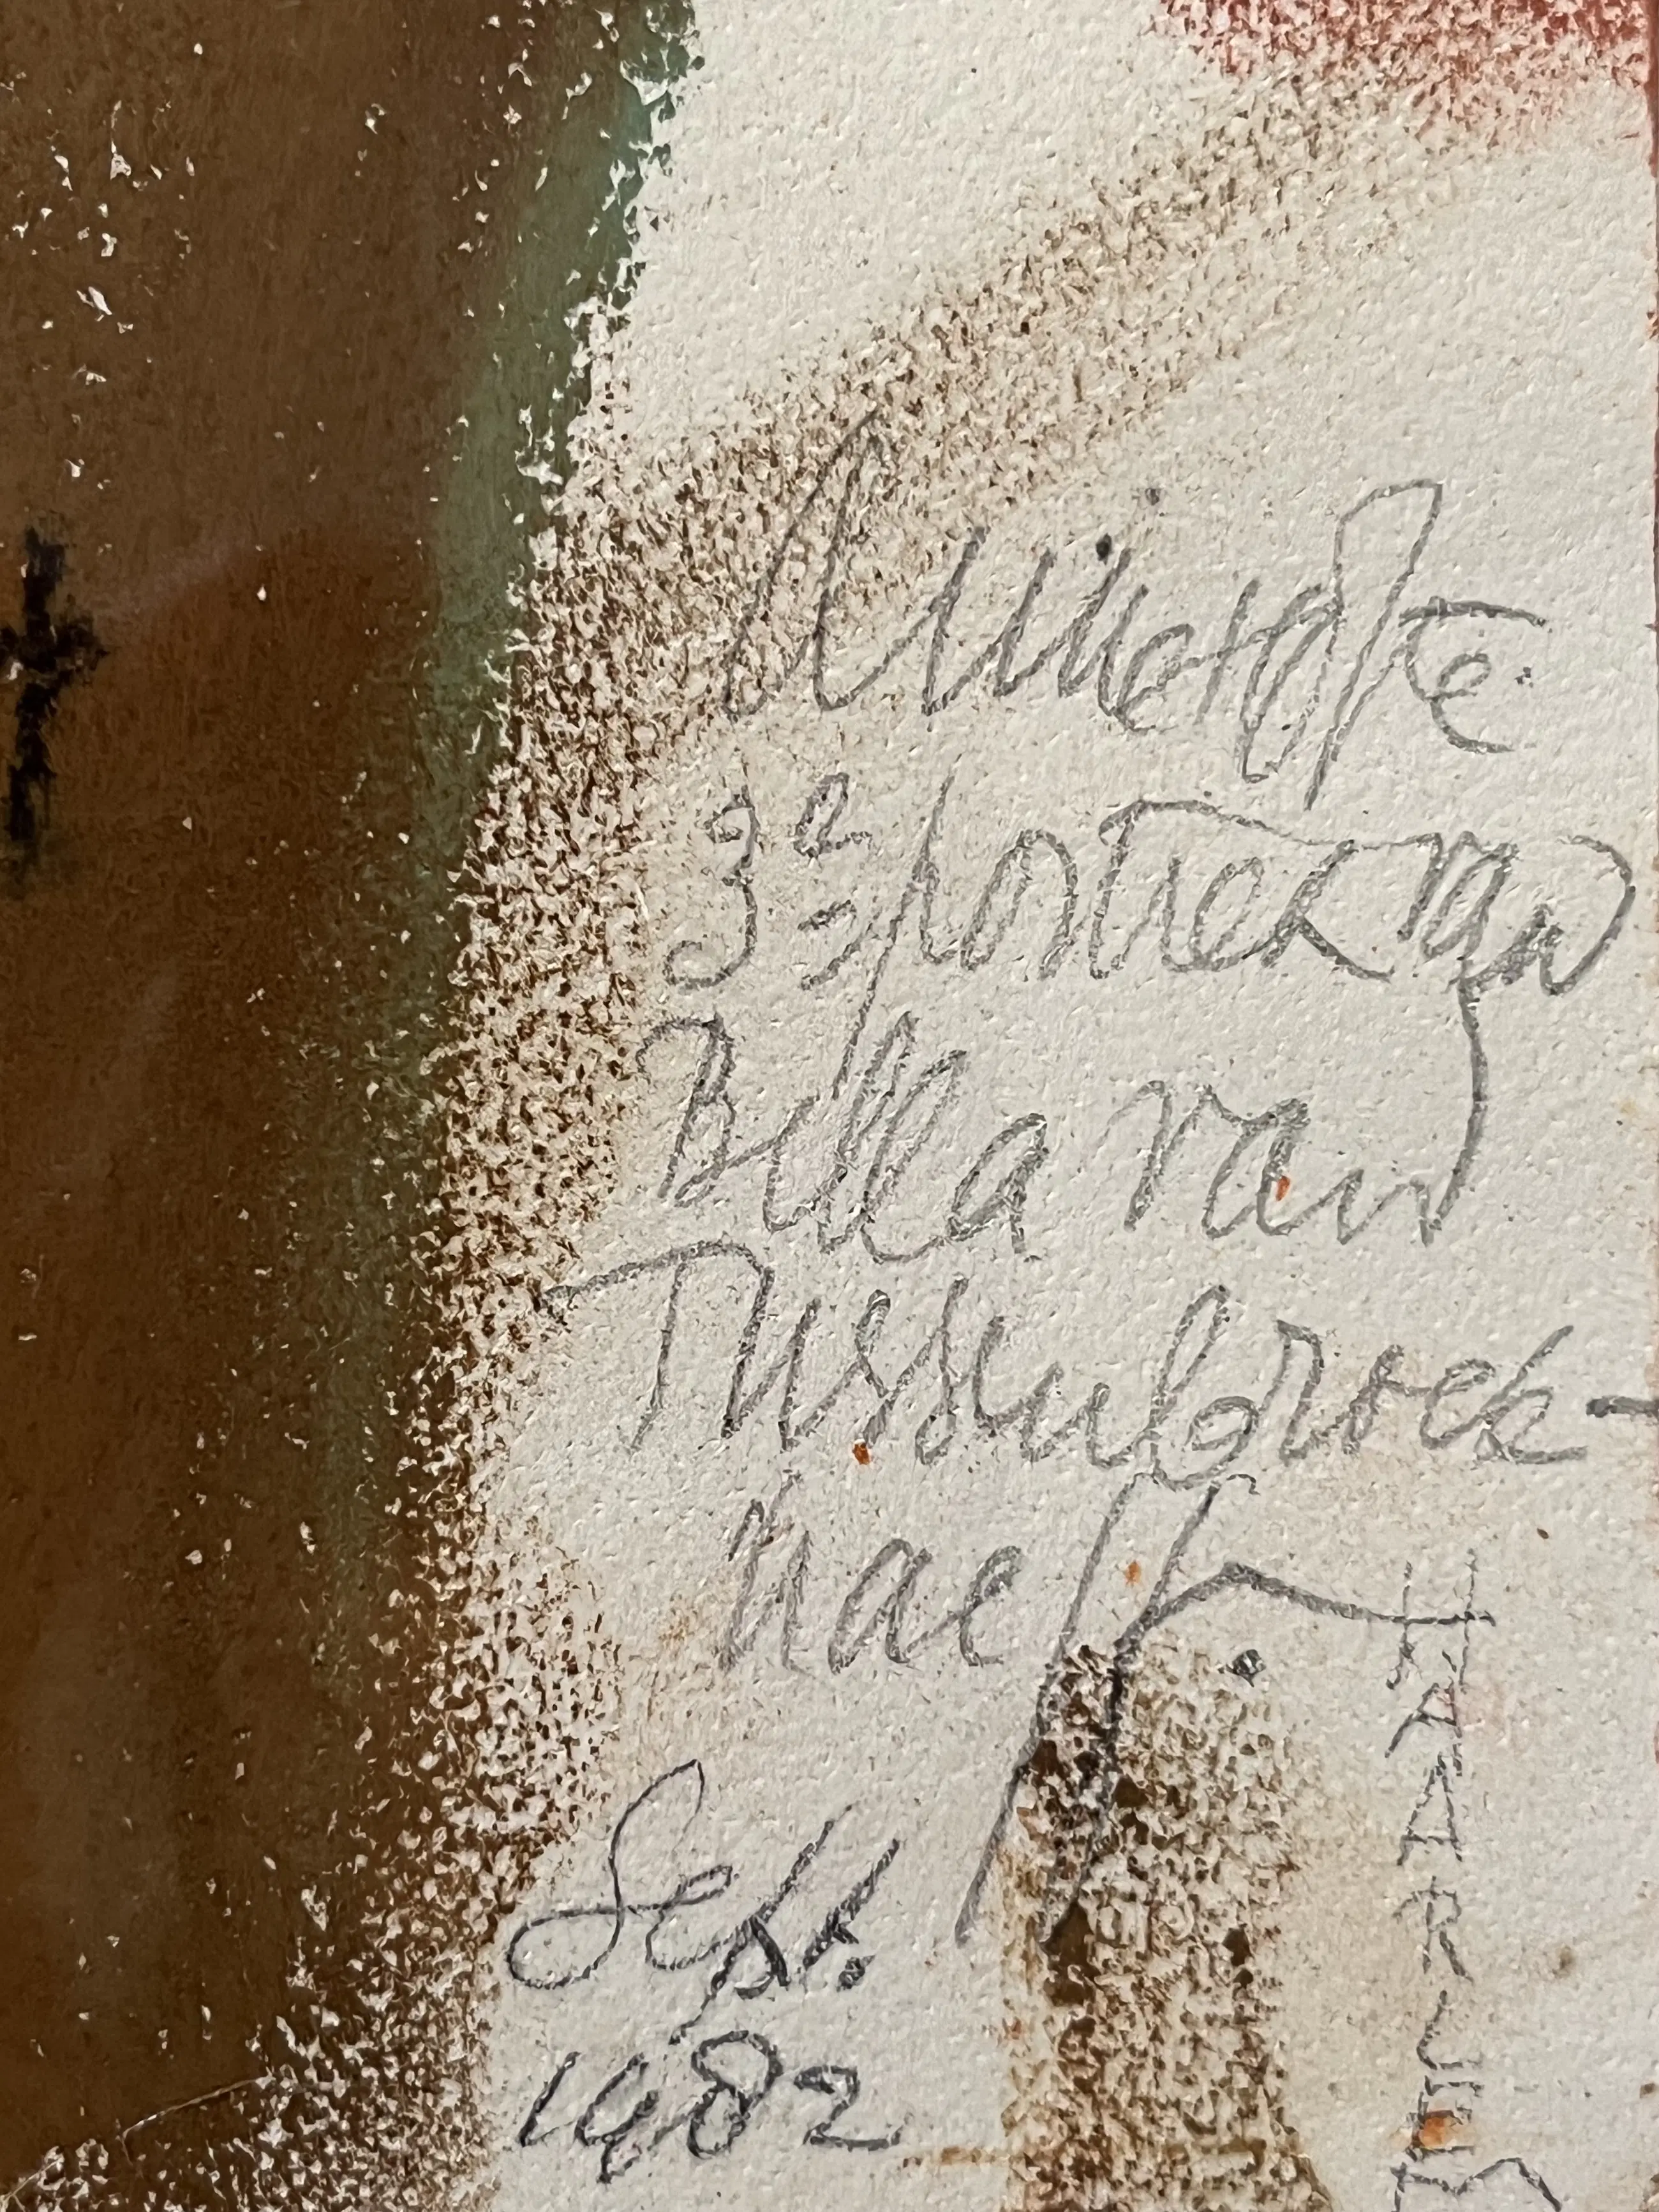 3e portret van
Bella van
Tussenbroek-
Naeff.
Sept.
1982
HAARLEM